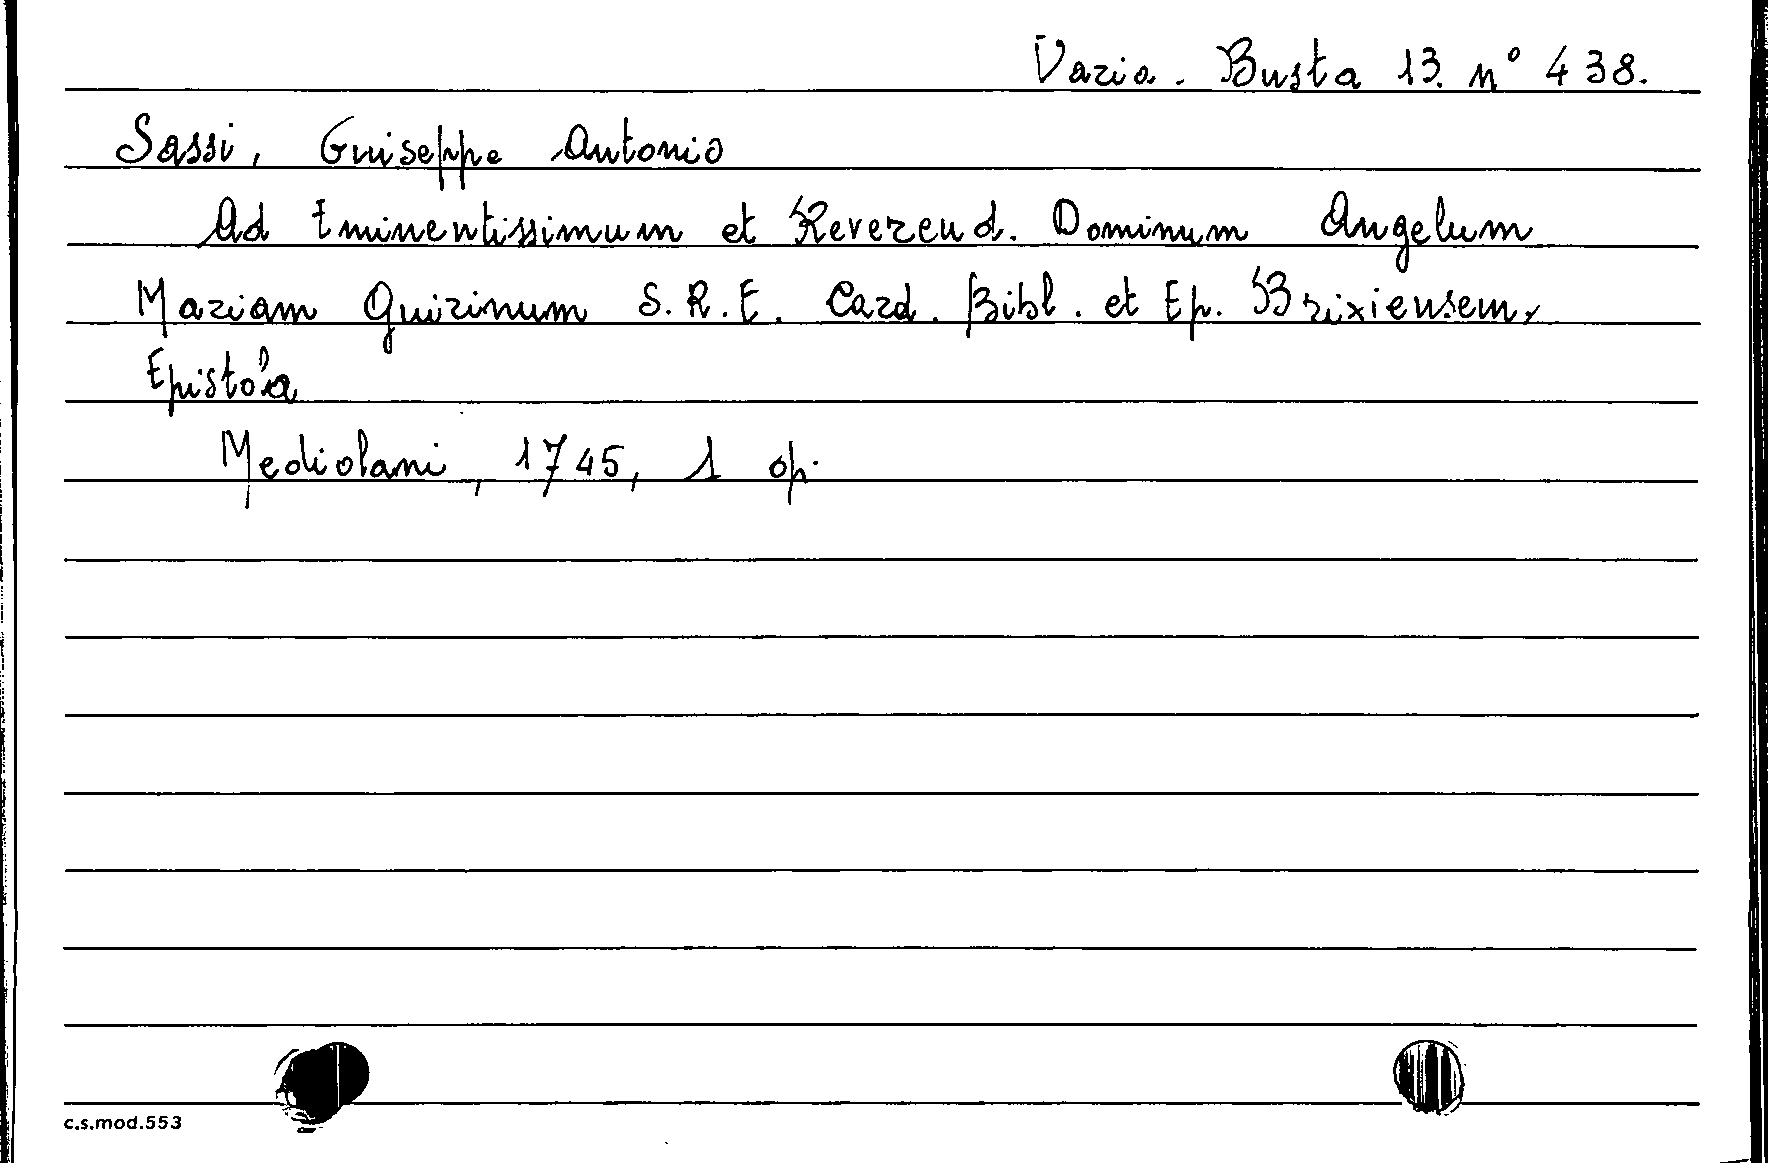 Varia. Busta 13. n° 438.
Sassi, Giuseppe Antonio
Ad Eminentissimum et Reverend. Dominum Angelum
Mariam Quirinum S.R.E. Card. Bibl. et Ep. Brixiensem,
Epistola
Mediolani, 1745, 1 op.
c.s.mod.553